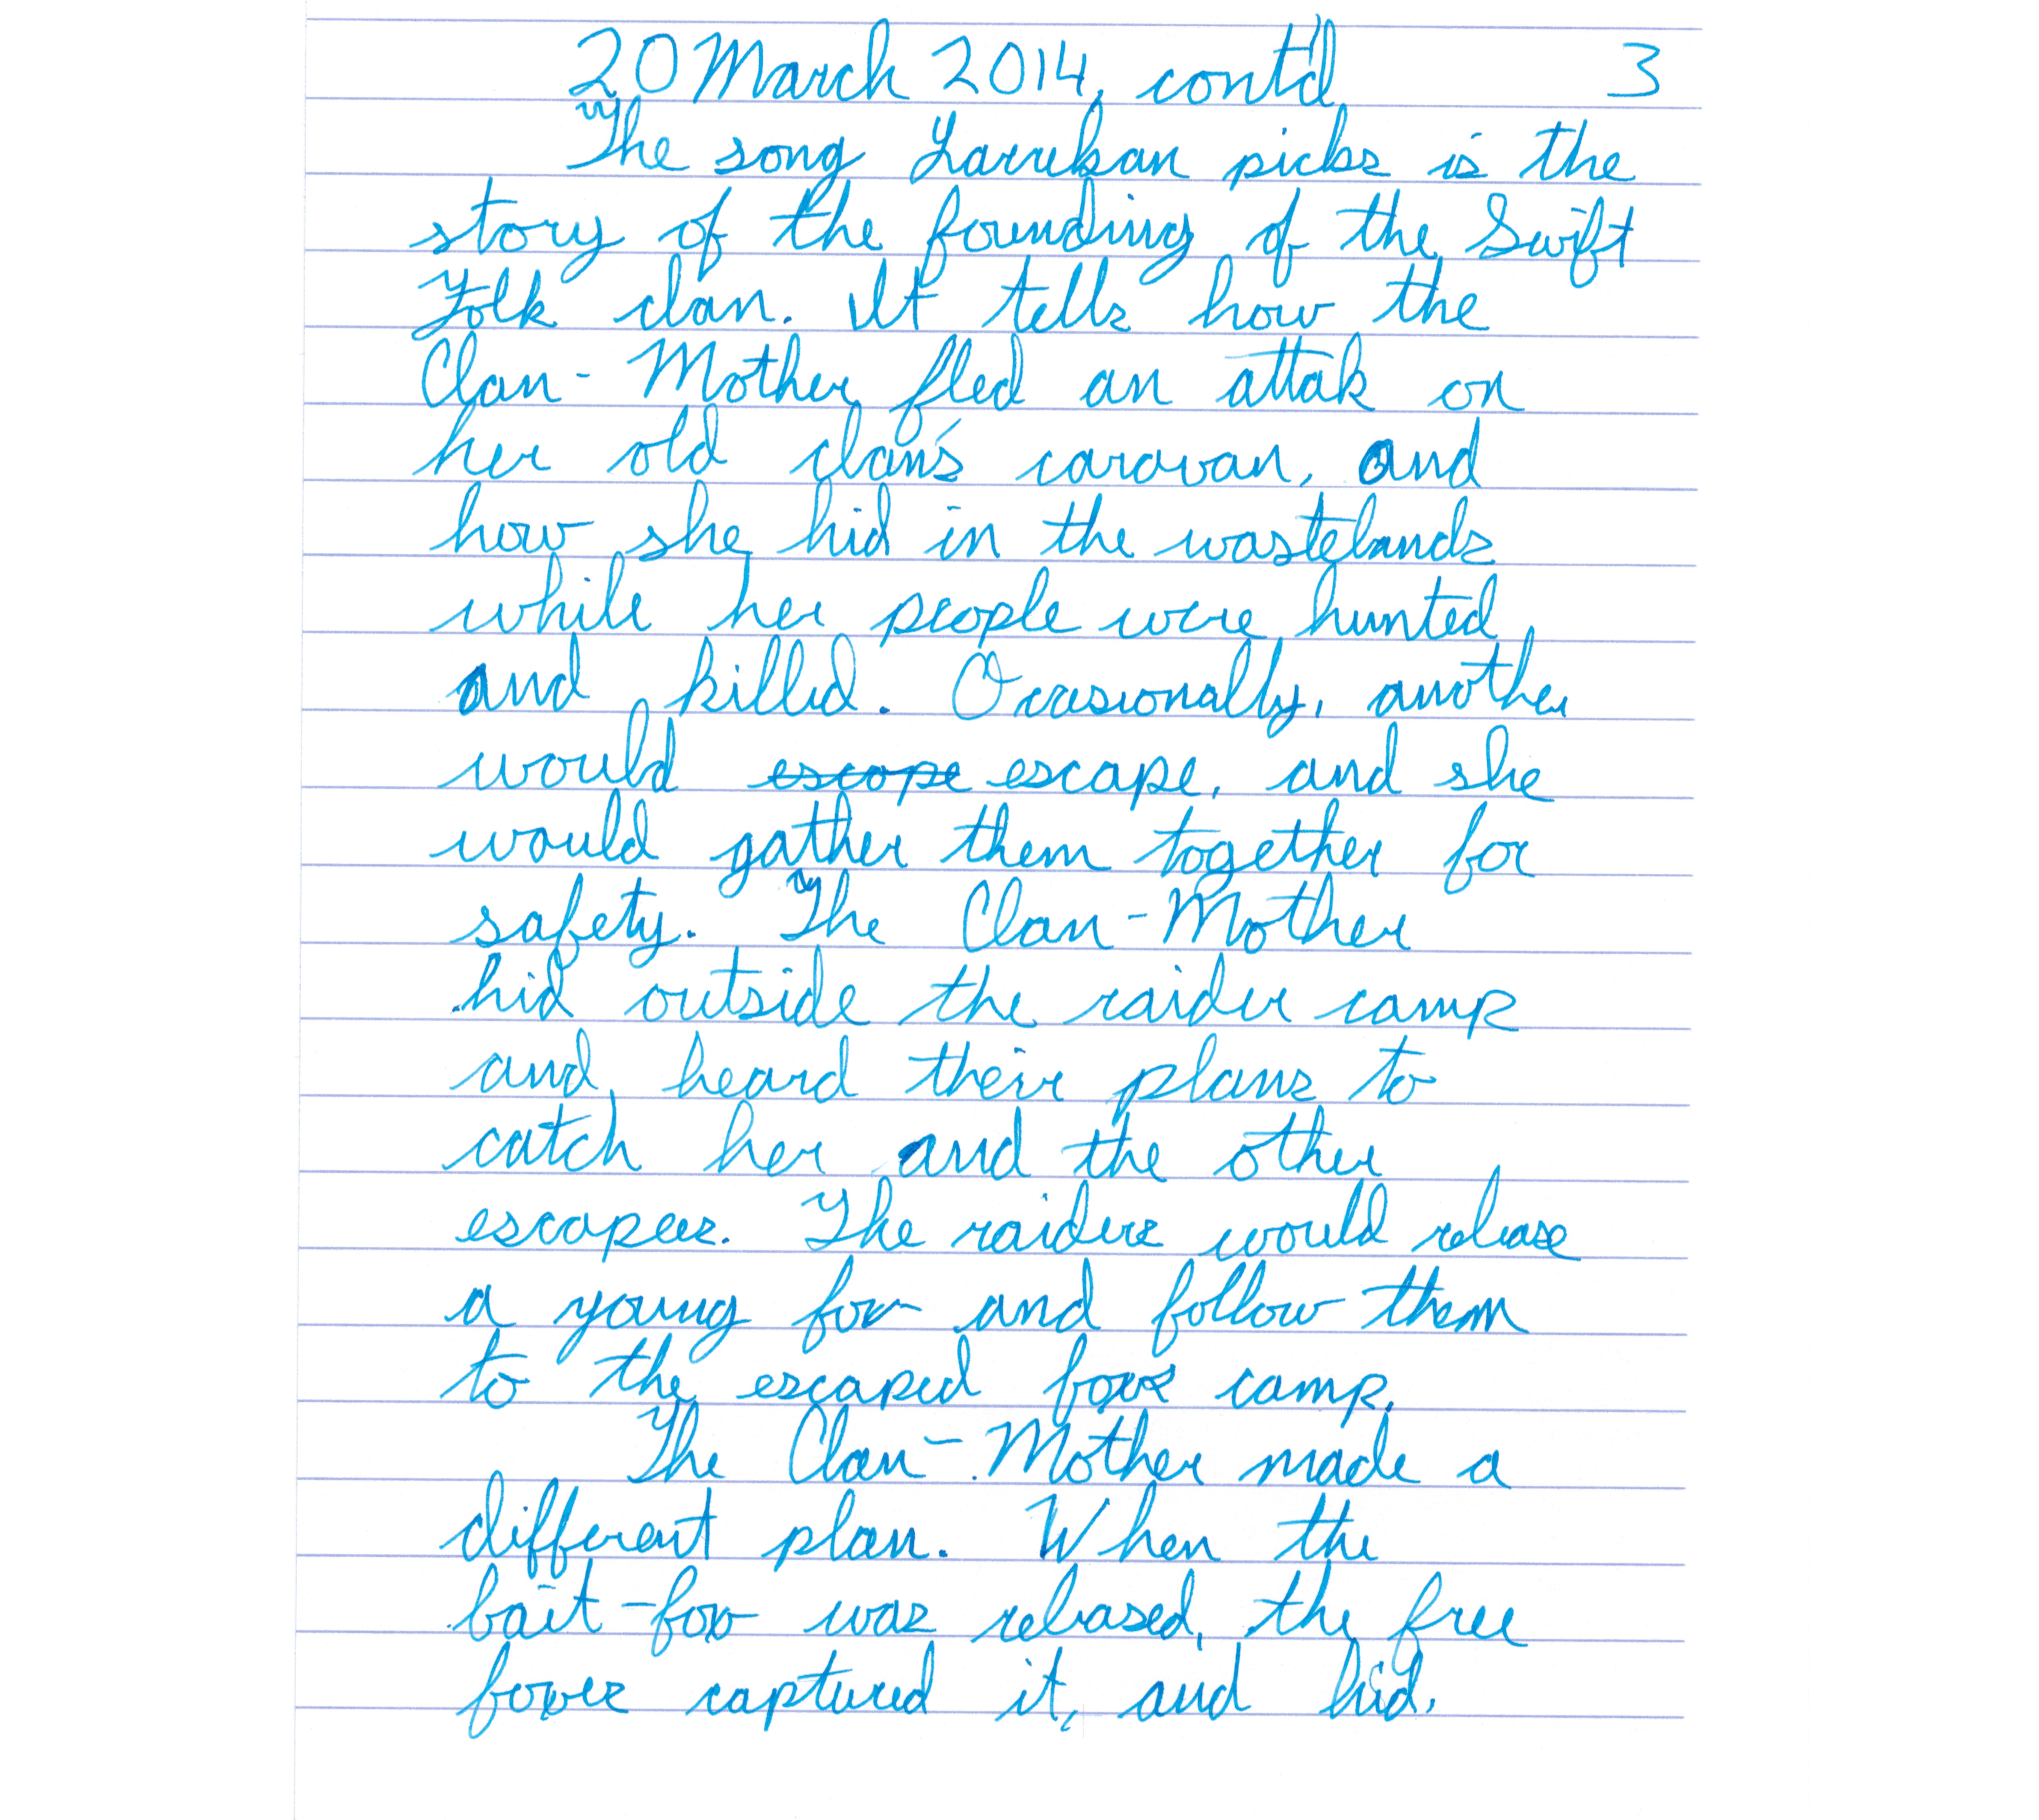 20 March 2014, cont'd 3
The song Larrekan picks is the
story of the founding of the Swift
Folk clan. It tells how the
Clan-Mother fled an attak on
her old clan's caravan, and
how she hid in the wastelands
while her people were hunted
and killed. Ocasionally, another
would escape escape, and she
would gather them together for
safety. The Clan-Mother
hid outside the raider camp
and heard their plans to
catch her and the other
escapees. The raiders would release
a young fox and follow them
to the escaped foxs camp.
The Clan-Mother made a
different plan. When the
bait-fox was released, the free
foxes captured it, and hid.